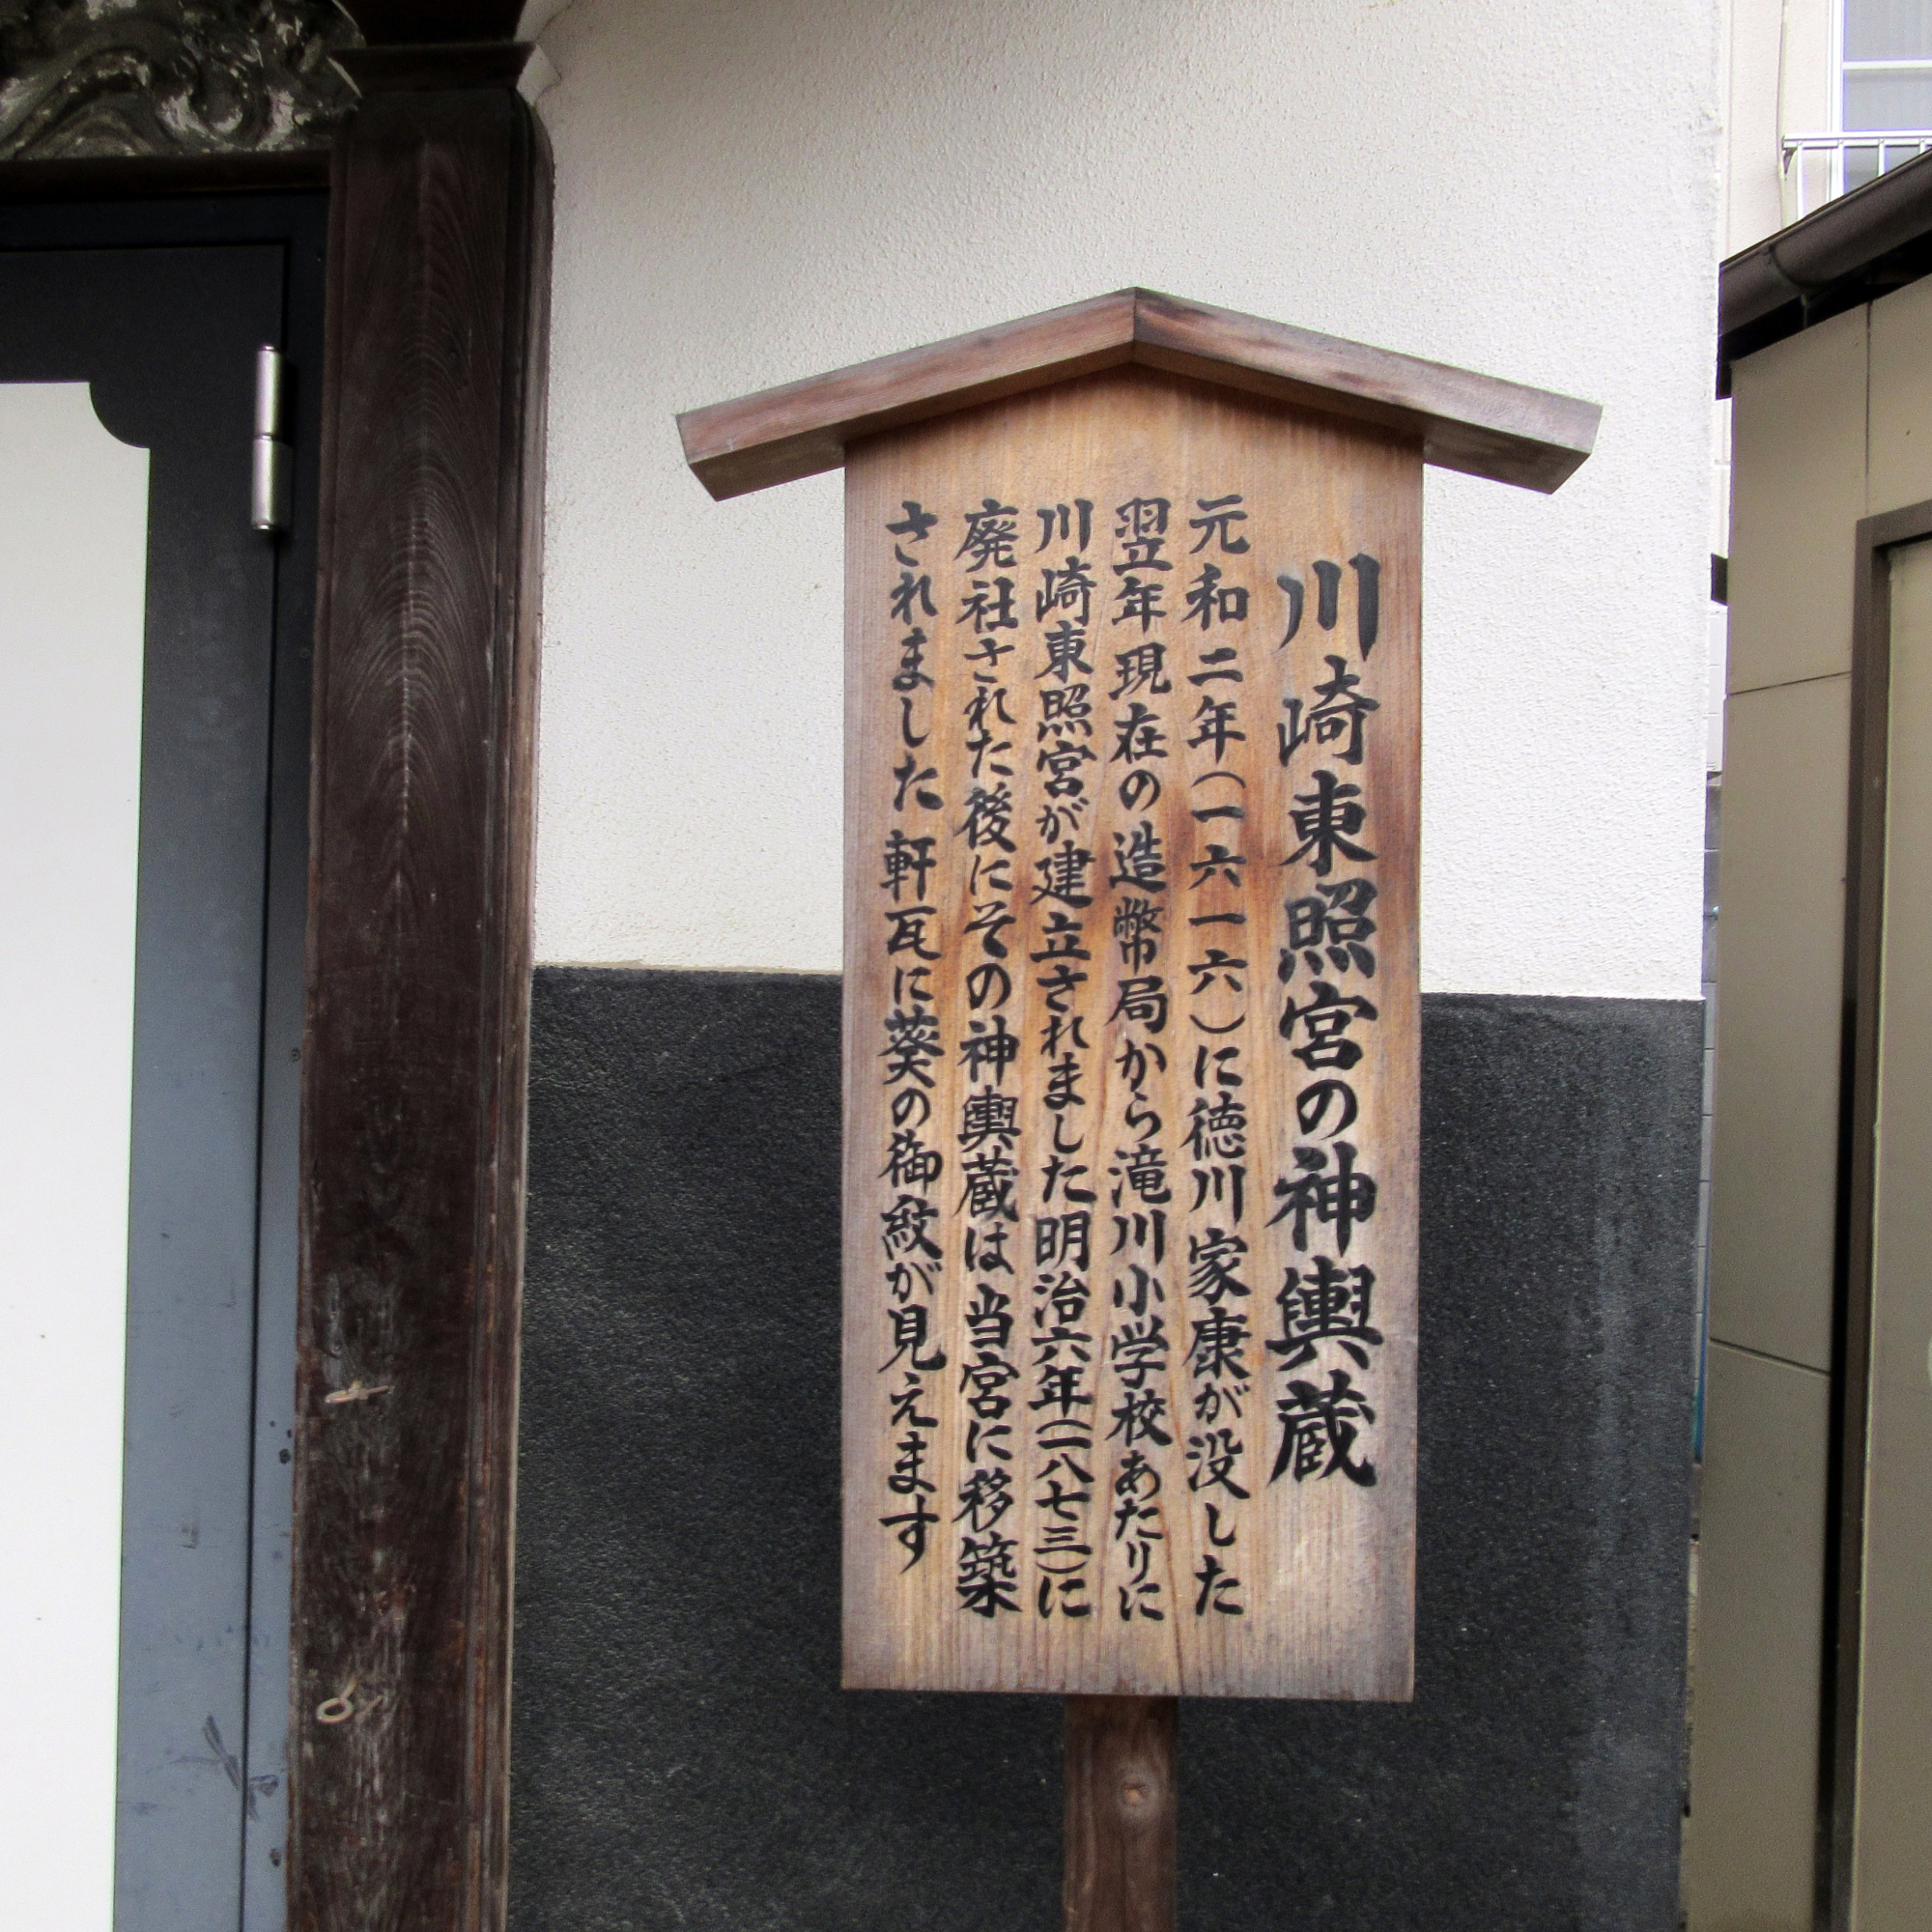 川崎東照宮の神輿蔵
元和二年(一六一六)に徳川家康が没した
翌年現在の造幣局から滝川小学校あたりに
川崎東照宮が建立されました明治六年(一八七三)に
廃社された後にその神輿蔵は当宮に移築
されました軒瓦に葵の御紋が見えます